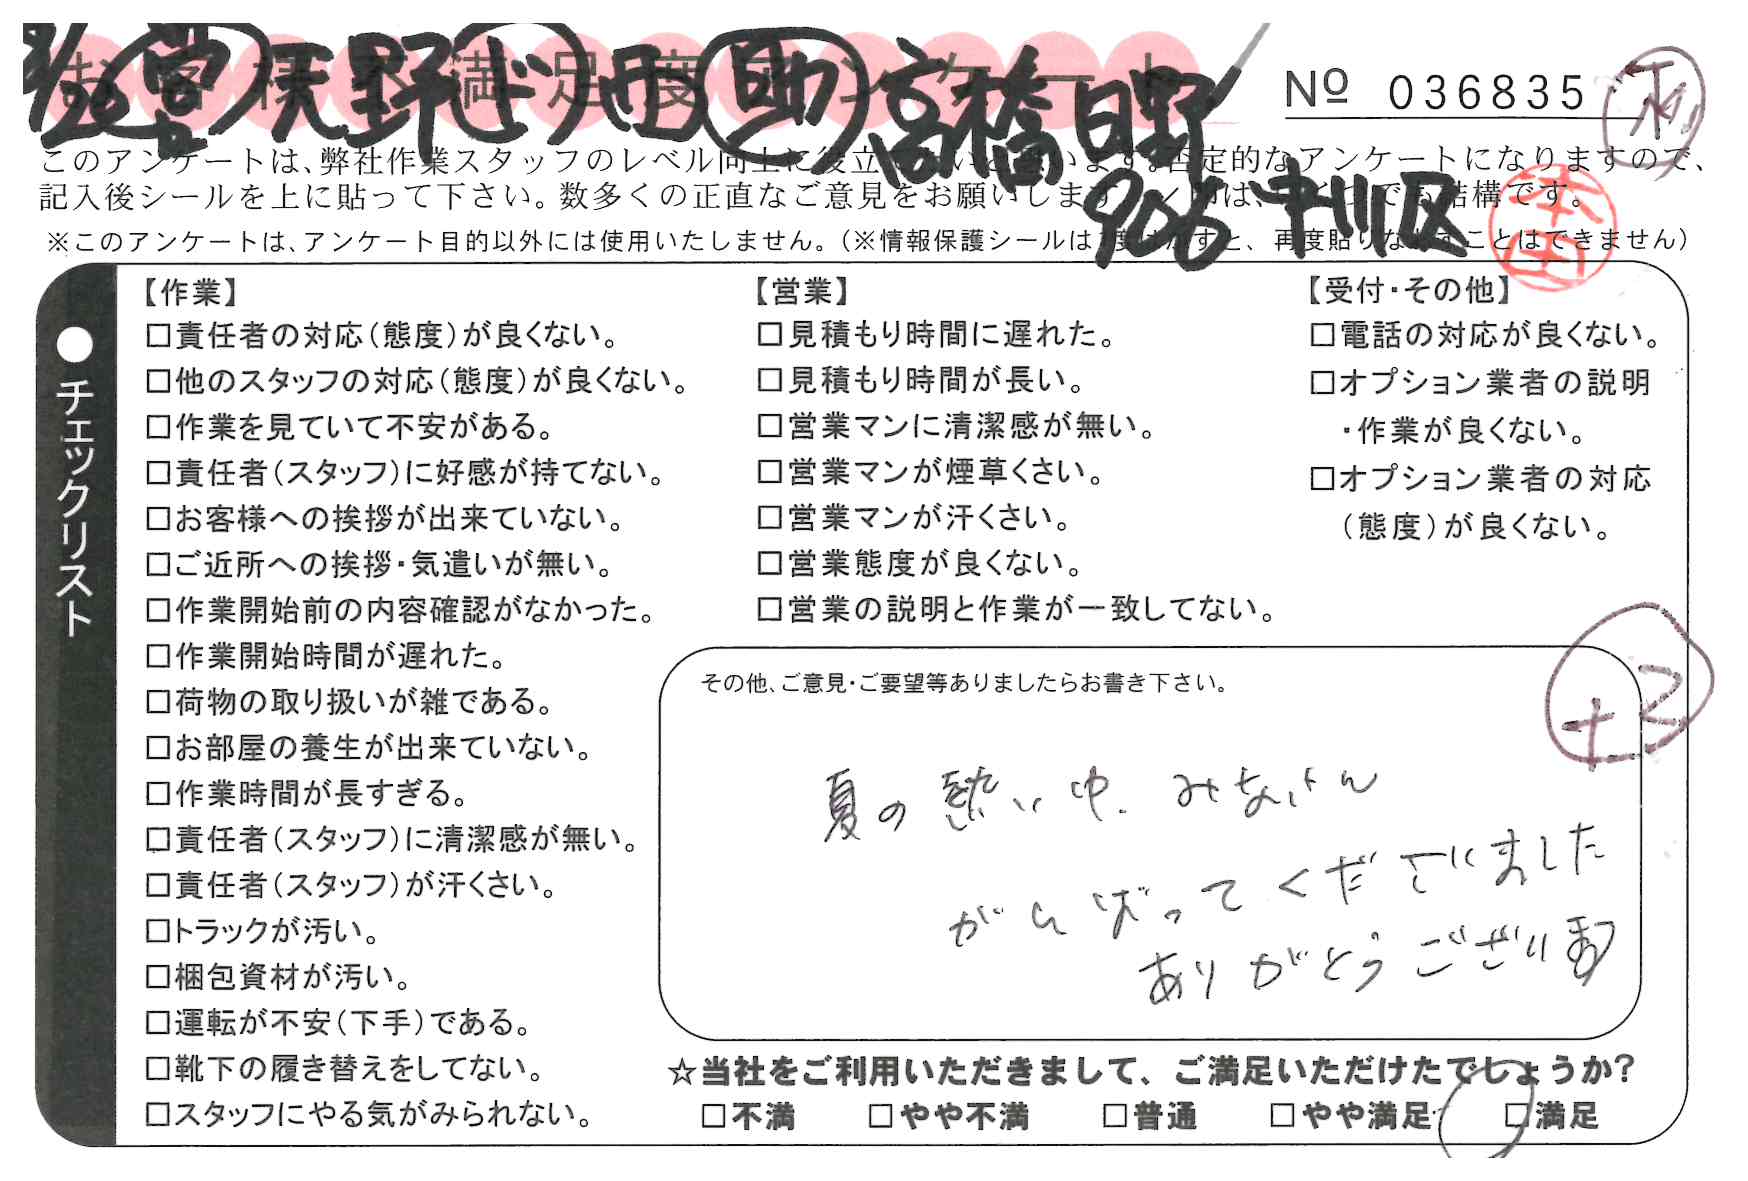 8/26 営 天野 ど 西 助 高橋 日野
お客様ご満足度アンケート
№ 036835
このアンケートは、弊社作業スタッフのレベル向上に役立 います。否定的なアンケートになりますので、
記入後シールを上に貼って下さい。数多くの正直なご意見をお願いします は、いくつでも結構です。
906 中川区
本田
※このアンケートは、アンケート目的以外には使用いたしません。(※情報保護シールは1度はがすと、再度貼りなおすことはできません)
●チェックリスト
【作業】
□責任者の対応(態度)が良くない。
□他のスタッフの対応(態度)が良くない。
□作業を見ていて不安がある。
□責任者(スタッフ)に好感が持てない。
□お客様への挨拶が出来ていない。
□ご近所への挨拶・気遣いが無い。
□作業開始前の内容確認がなかった。
□作業開始時間が遅れた。
□荷物の取り扱いが雑である。
□お部屋の養生が出来ていない。
□作業時間が長すぎる。
□責任者(スタッフ)に清潔感が無い。
□責任者(スタッフ)が汗くさい。
□トラックが汚い。
□梱包資材が汚い。
□運転が不安(下手)である。
□靴下の履き替えをしてない。
□スタッフにやる気がみられない。
【営業】
□見積もり時間に遅れた。
□見積もり時間が長い。
□営業マンに清潔感が無い。
□営業マンが煙草くさい。
□営業マンが汗くさい。
□営業態度が良くない。
□営業の説明と作業が一致してない。
【受付・その他】
□電話の対応が良くない。
□オプション業者の説明
・作業が良くない。
□オプション業者の対応
(態度)が良くない。
+2
その他、ご意見・ご要望等ありましたらお書き下さい。
夏の熱い中、みなさん
がんばってくださいました
ありがとうございます
☆当社をご利用いただきまして、ご満足いただけたでしょうか?
□不満 □やや不満 □普通 □やや満足 □満足